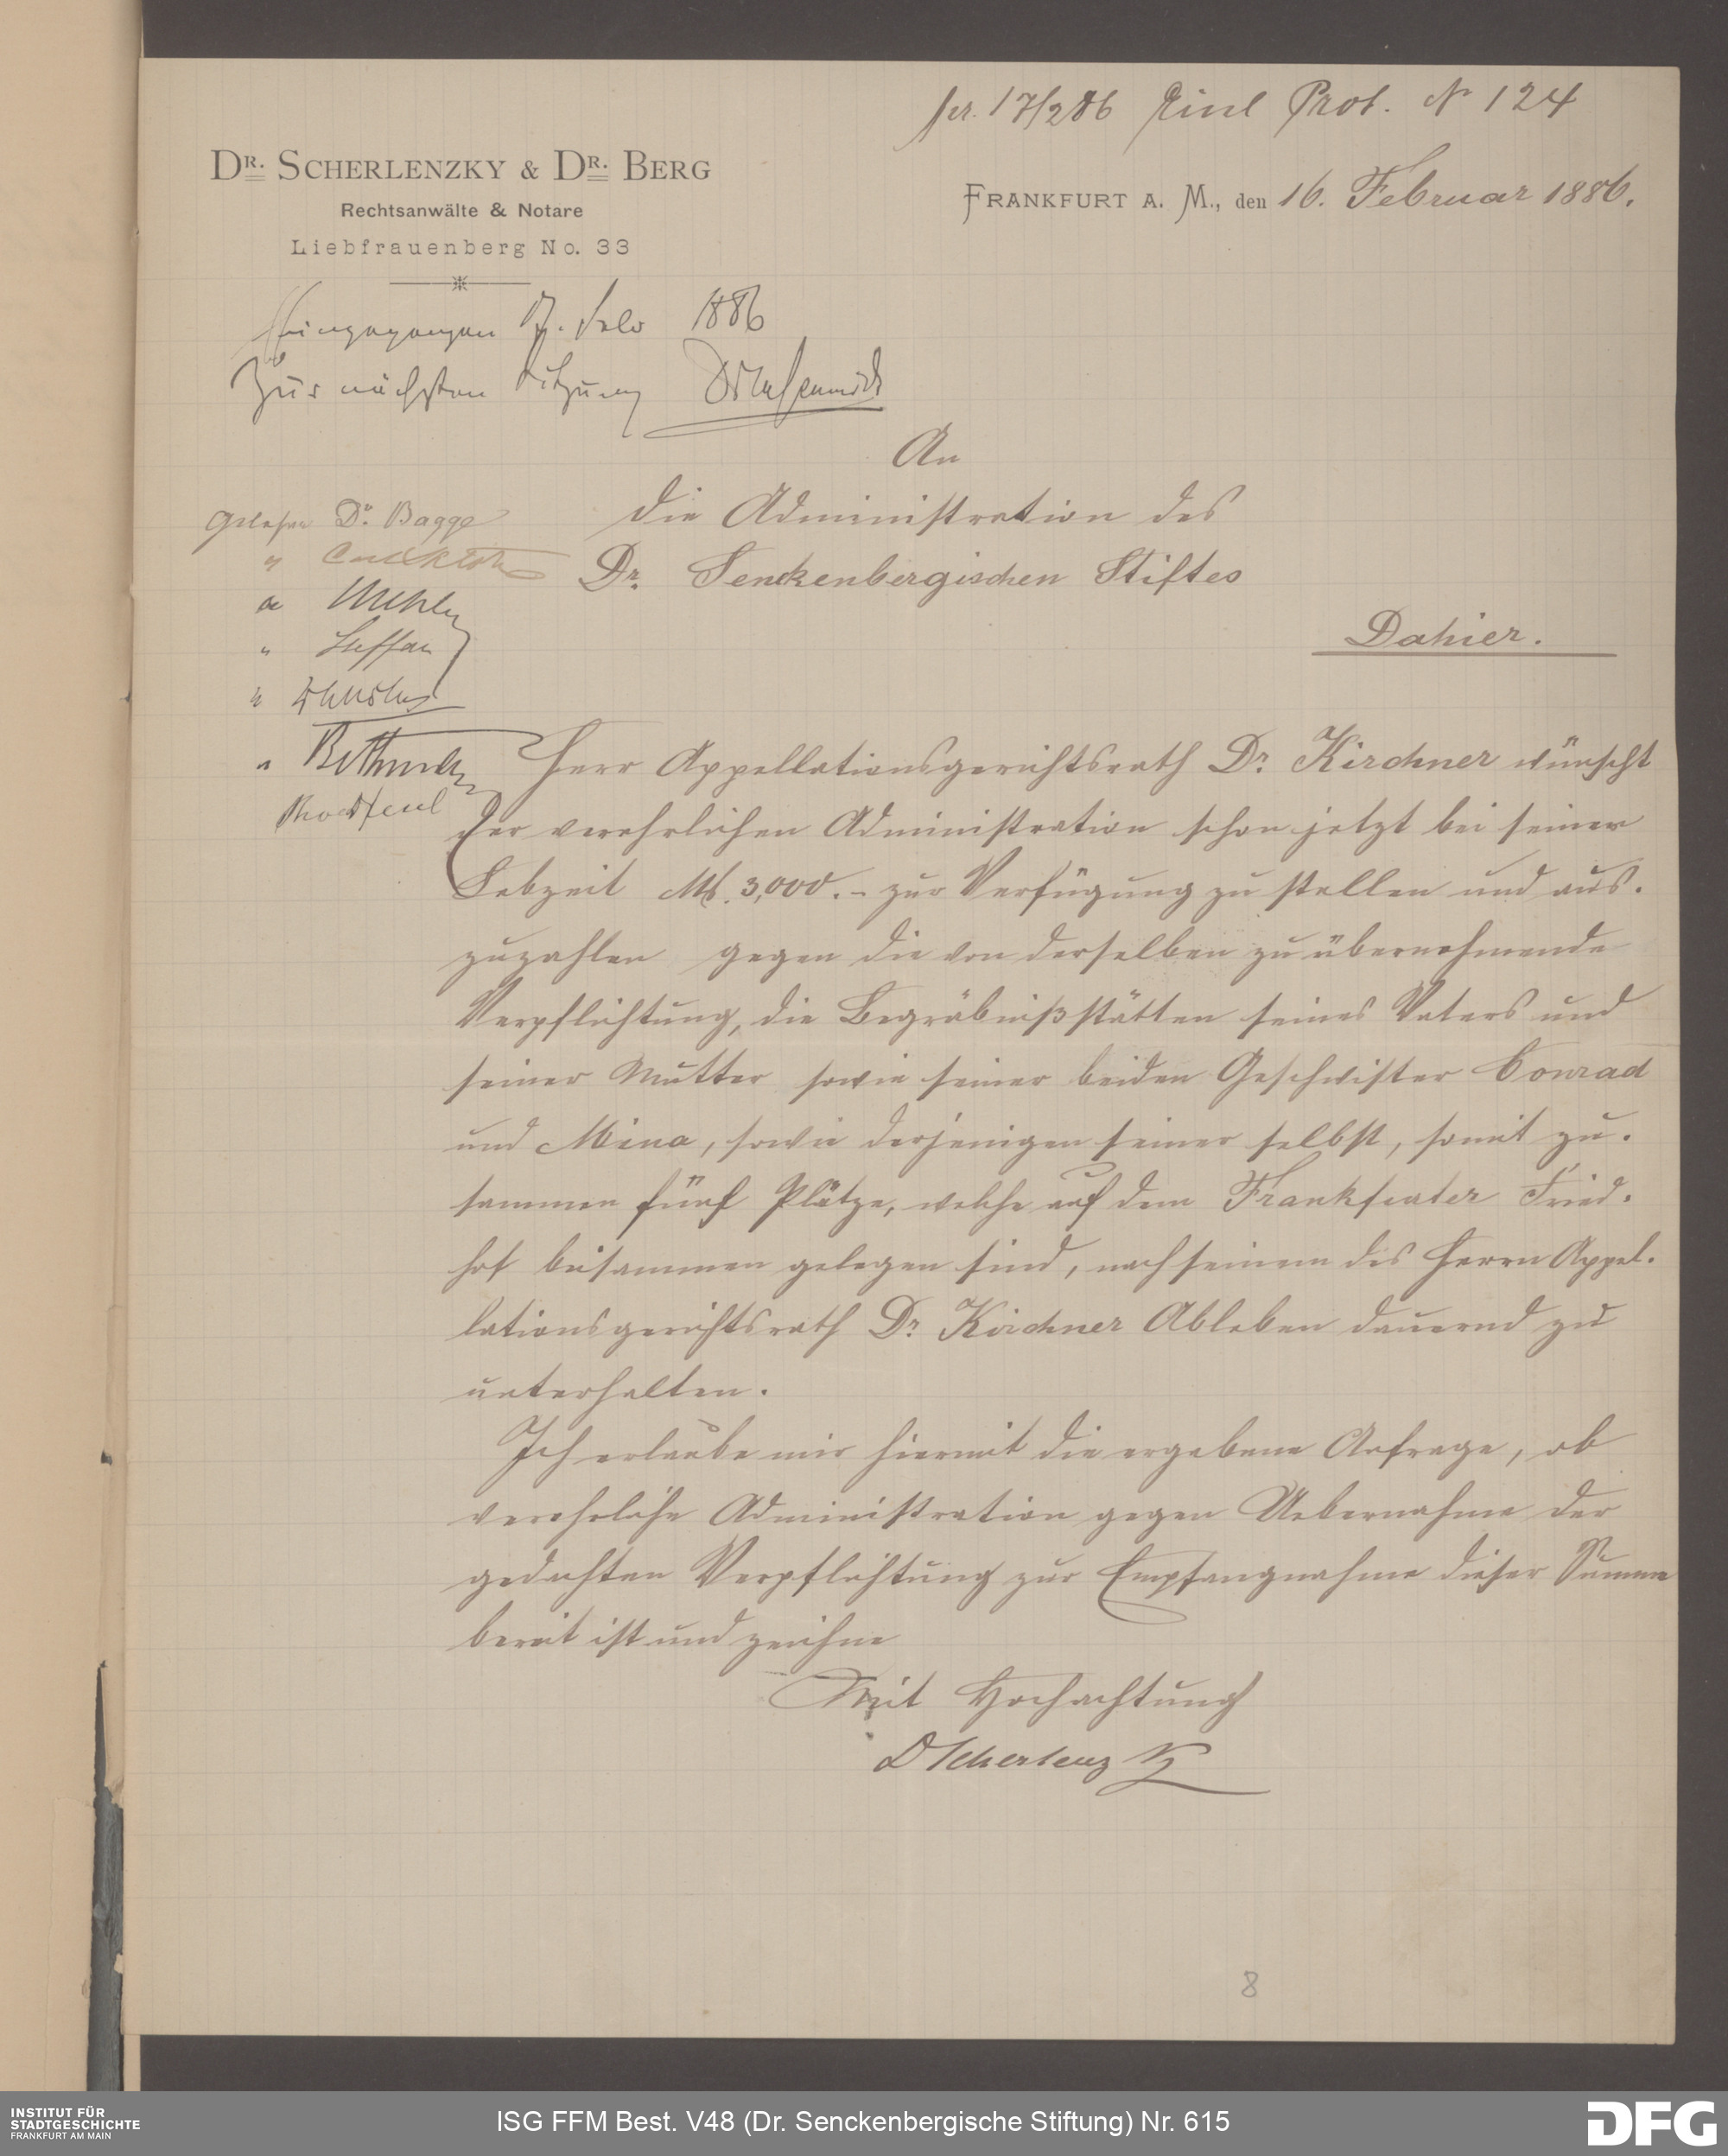 pr. 17/2 86 Einl Prot. № 124
Dr. Scherlenzky & Dr. Berg
Rechtsanwälte & Notare
Liebfrauenberg No. 33
Frankfurt a. M., den 16. Februar 1886.
Eingegangen 17. Febr 1886
Zur nächsten Sitzung
An
die Administration des
Dr. Senckenbergischen Stiftes
Dahier.
Gelesen Dr. Bagge
"
"
" Steffan
"
"
Herr Appellationsgerichtsrath Dr. Kirchner wünscht
der verehrlichen Administration schon jetzt bei seiner
Lebzeit Mk. 3,000.- zur Verfügung zu stellen und aus-
zuzahlen gegen die von derselben zu übernehmende
Verpflichtung, die Begräbnißstätten seines Vaters und
seiner Mutter sowie seiner beiden Geschwister Conrad
und Mina, sowie derjenigen seiner selbst, somit zu-
sammen fünf Plätze, welche auf dem Frankfurter Fried-
hof beisammen gelegen sind, nach seinem des Herrn Appel-
lationsgerichtsrath Dr. Kirchner Ableben dauernd zu
unterhalten.
Ich erlaube mir hiermit die ergebene Anfrage, ob
verehrliche Administration gegen Uebernahme der
gedachten Verpflichtung zur Empfangnahme dieser Summe
bereit ist und zeichne
Mit Hochachtung
Dr Scherlenzky
8
INSTITUT FÜR
STADTGESCHICHTE
FRANKFURT AM MAIN
ISG FFM Best. V48 (Dr. Senckenbergische Stiftung) Nr. 615
DFG